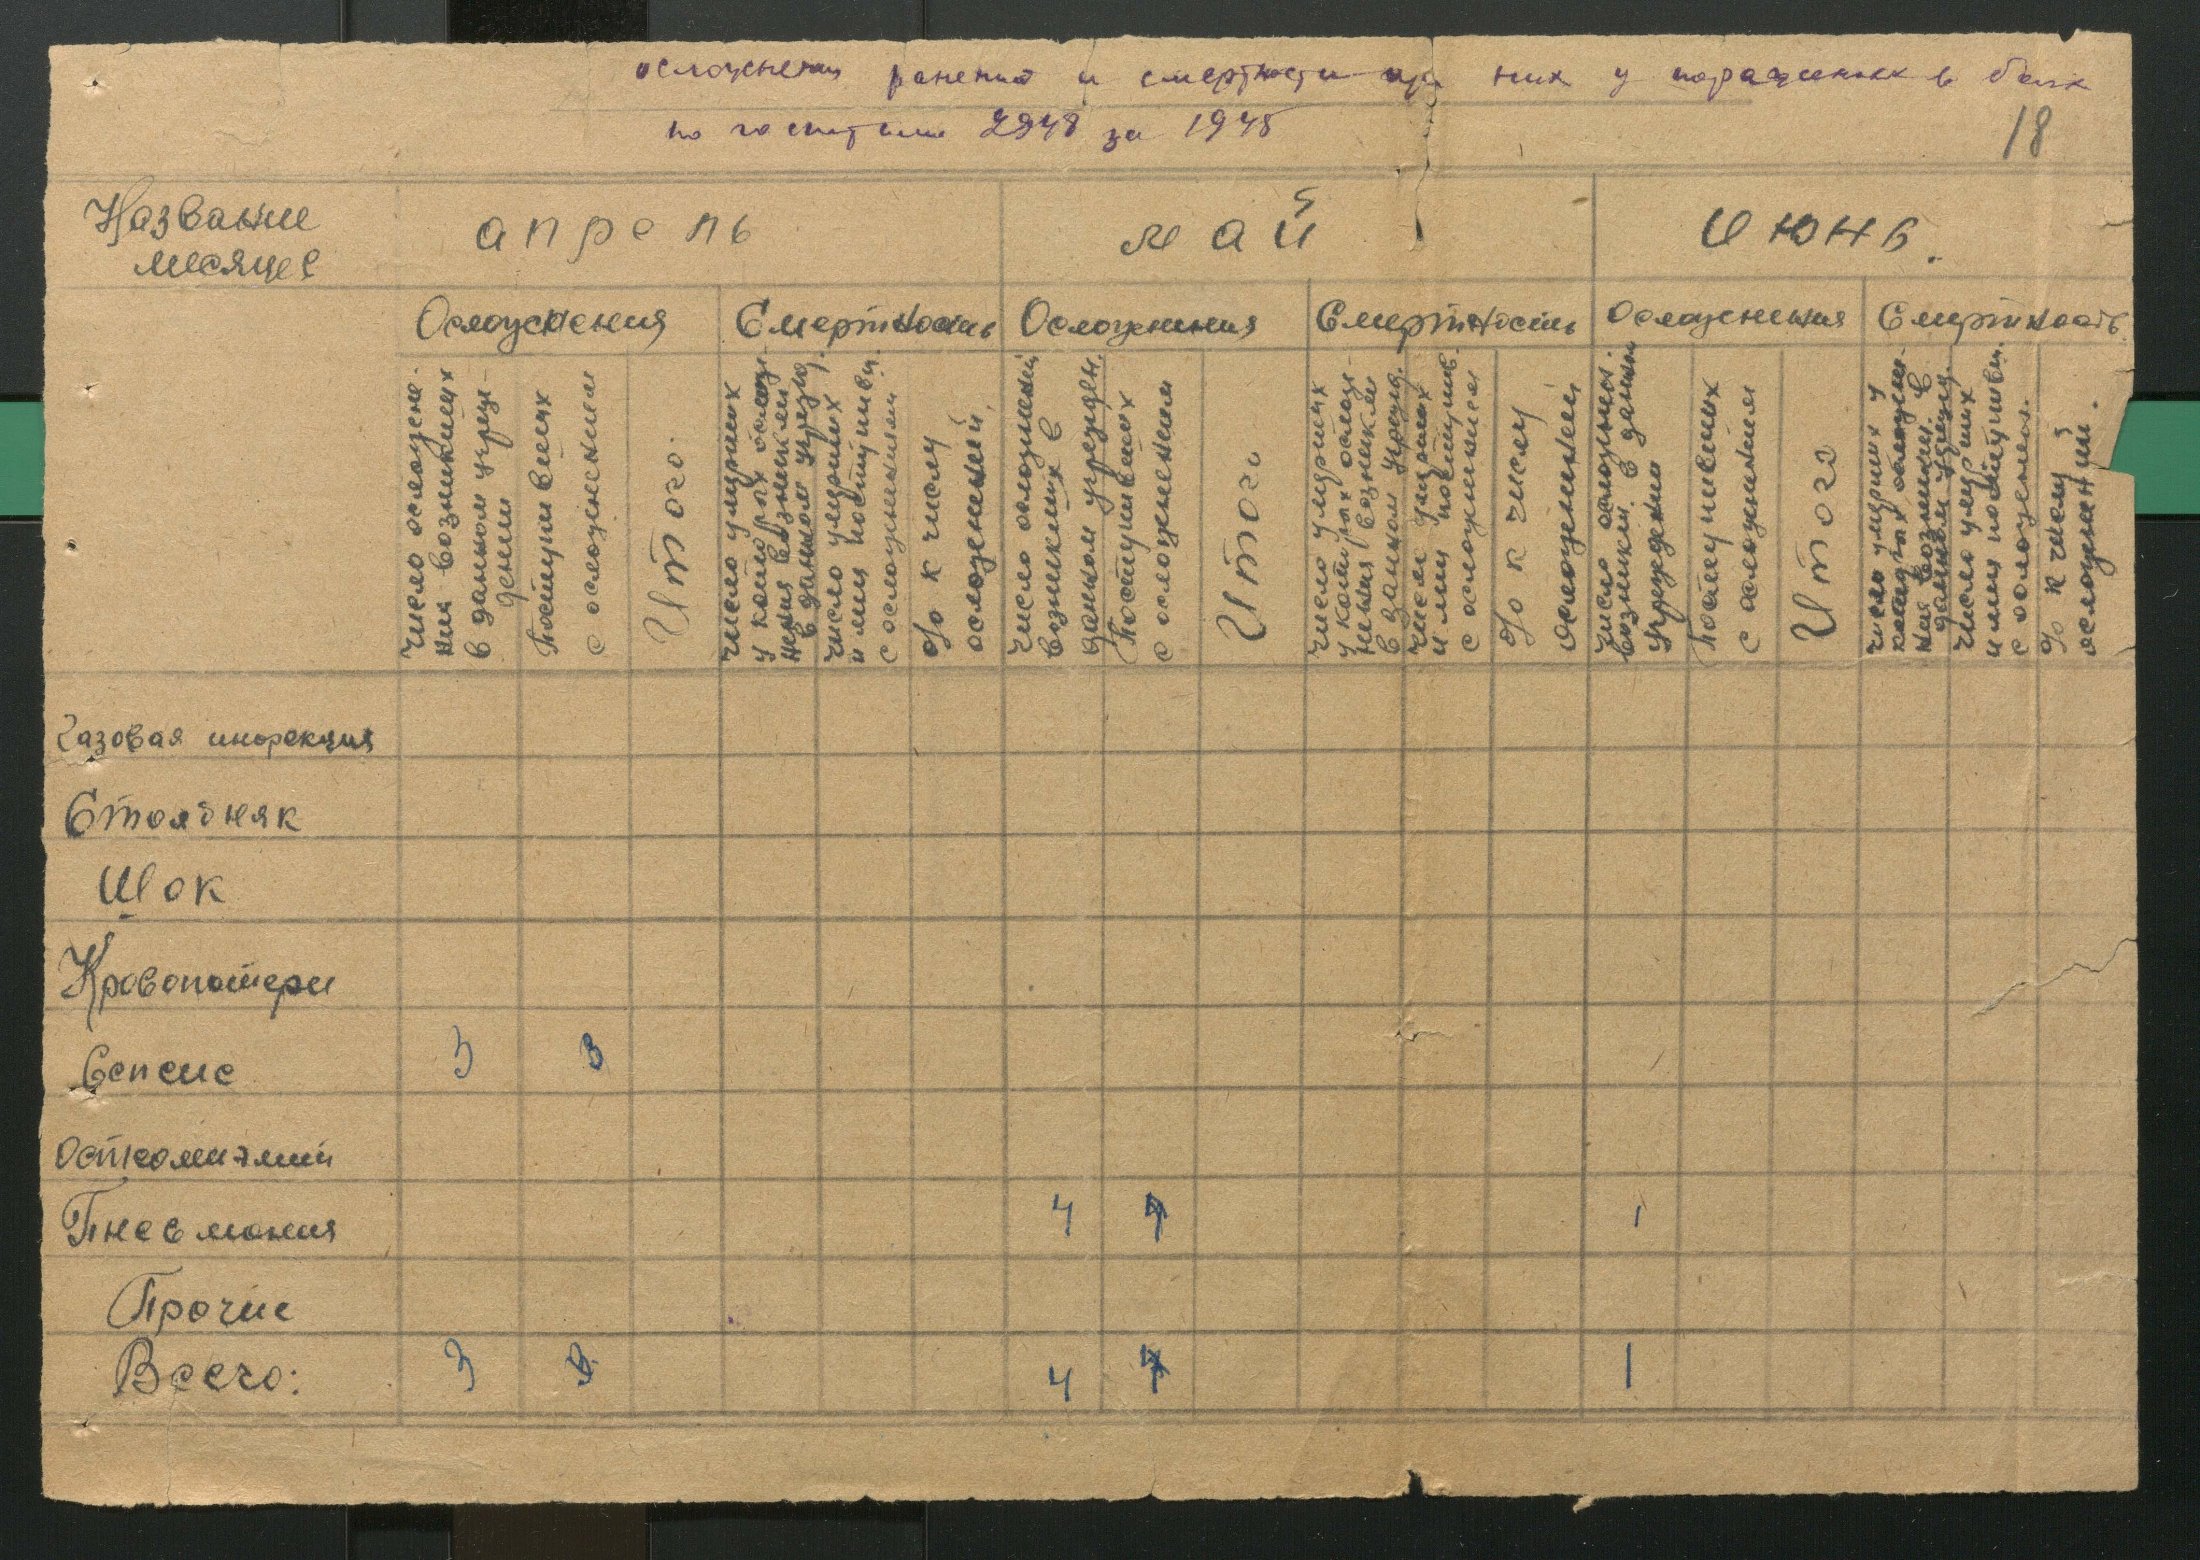 осложнения ранений и смертности при них у поражённых в боях
по госпиталю 2948 за 1945
18
Название
месяцев
апрель
май
июнь.
Осложнения
Смертность
Осложнения
Смертность
Осложнения
Смертность
Число осложне-
ния возникших
в данном учреж-
дении
Поступивших
с осложнением
Итого.
Число умерших
у которых ослож-
нения возникли
в данном учрежд.
Число умерших
из поступивш.
с осложнением
% к числу
осложнений
Число осложнений
возникших в
данном учрежден.
Поступивших
с осложнением
Итого
Число умерших
у которых ослож-
нения возникли
в данном учрежд.
Число умерших
поступив.
с осложнением
% к числу
осложнений
Число осложнен.
возникш. в данном
учреждении
Поступивших
с осложнением
Итого
Число умерших у
которых осложне-
ния возникли в
данном учрежд.
Число умерших
из поступивш.
с осложнен.
% к числу
осложнений.
Газовая инфекция
Столбняк
Шок
Кровопотери
Сепсис 3 3
Остеомиэлит
Пневмония 4 4 1
Прочие
Всего: 3 3 4 4 1